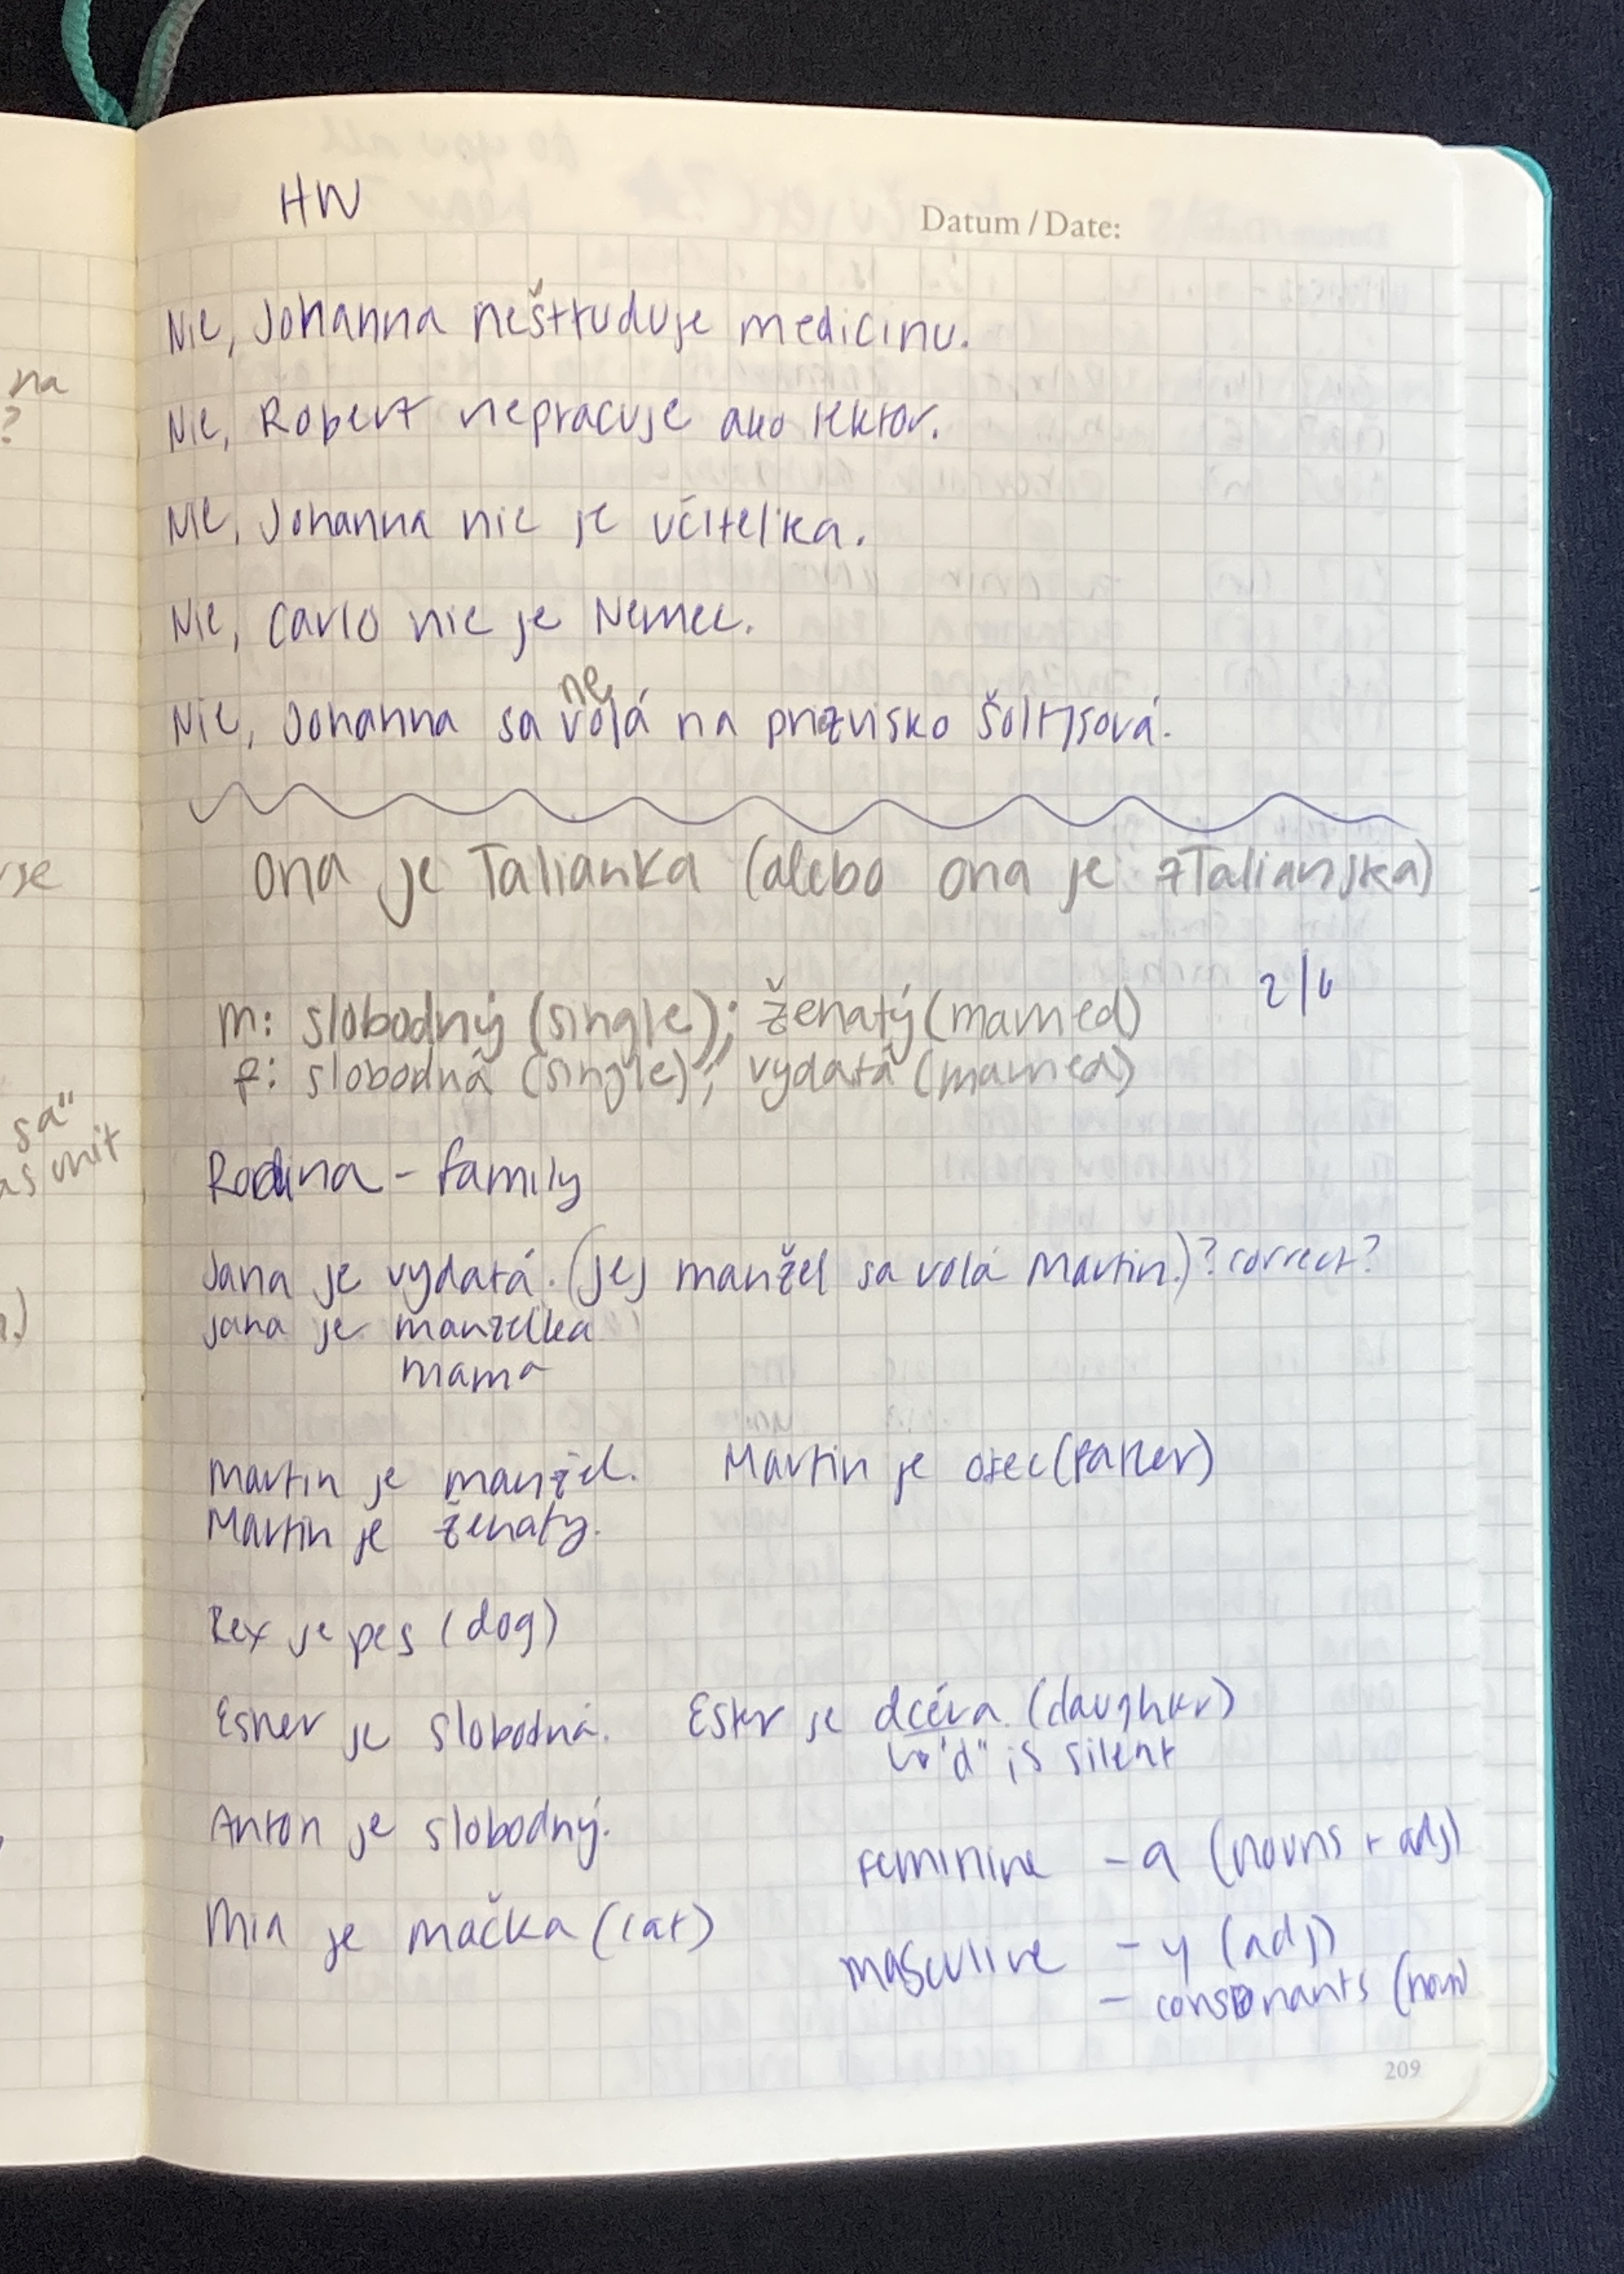 HW
Datum / Date:
Nie, Johanna neštruduje medicinu.
na
Nie, Robert nepracuje ako lektor.
?
Nie, Johanna nie je učitelka.
Nie, Carlo nie je Nemec.
ne
Nie, Johanna sa volá na prizvisko Šoltysová.
Ona je Talianka (alebo ona je z Talianska)
m: slobodný (single); ženatý (married)
2/6
f: slobodná (single); vydatá (married)
sa"
as unit
Rodina - family
Jana je vydatá. (jej manžel sa volá Martin.)? correct?
Jana je manzelka
mama
Martin je manžel. Martin je otec (father)
Martin je ženaty.
Rex je pes (dog)
Esher je slobodná. Ester je dcéra (daughter)
"d" is silent
Anton je slobodný.
Feminine - a (nouns + adj)
Mia je mačka (cat)
masculine - y (adj)
- consonants (noun)
209